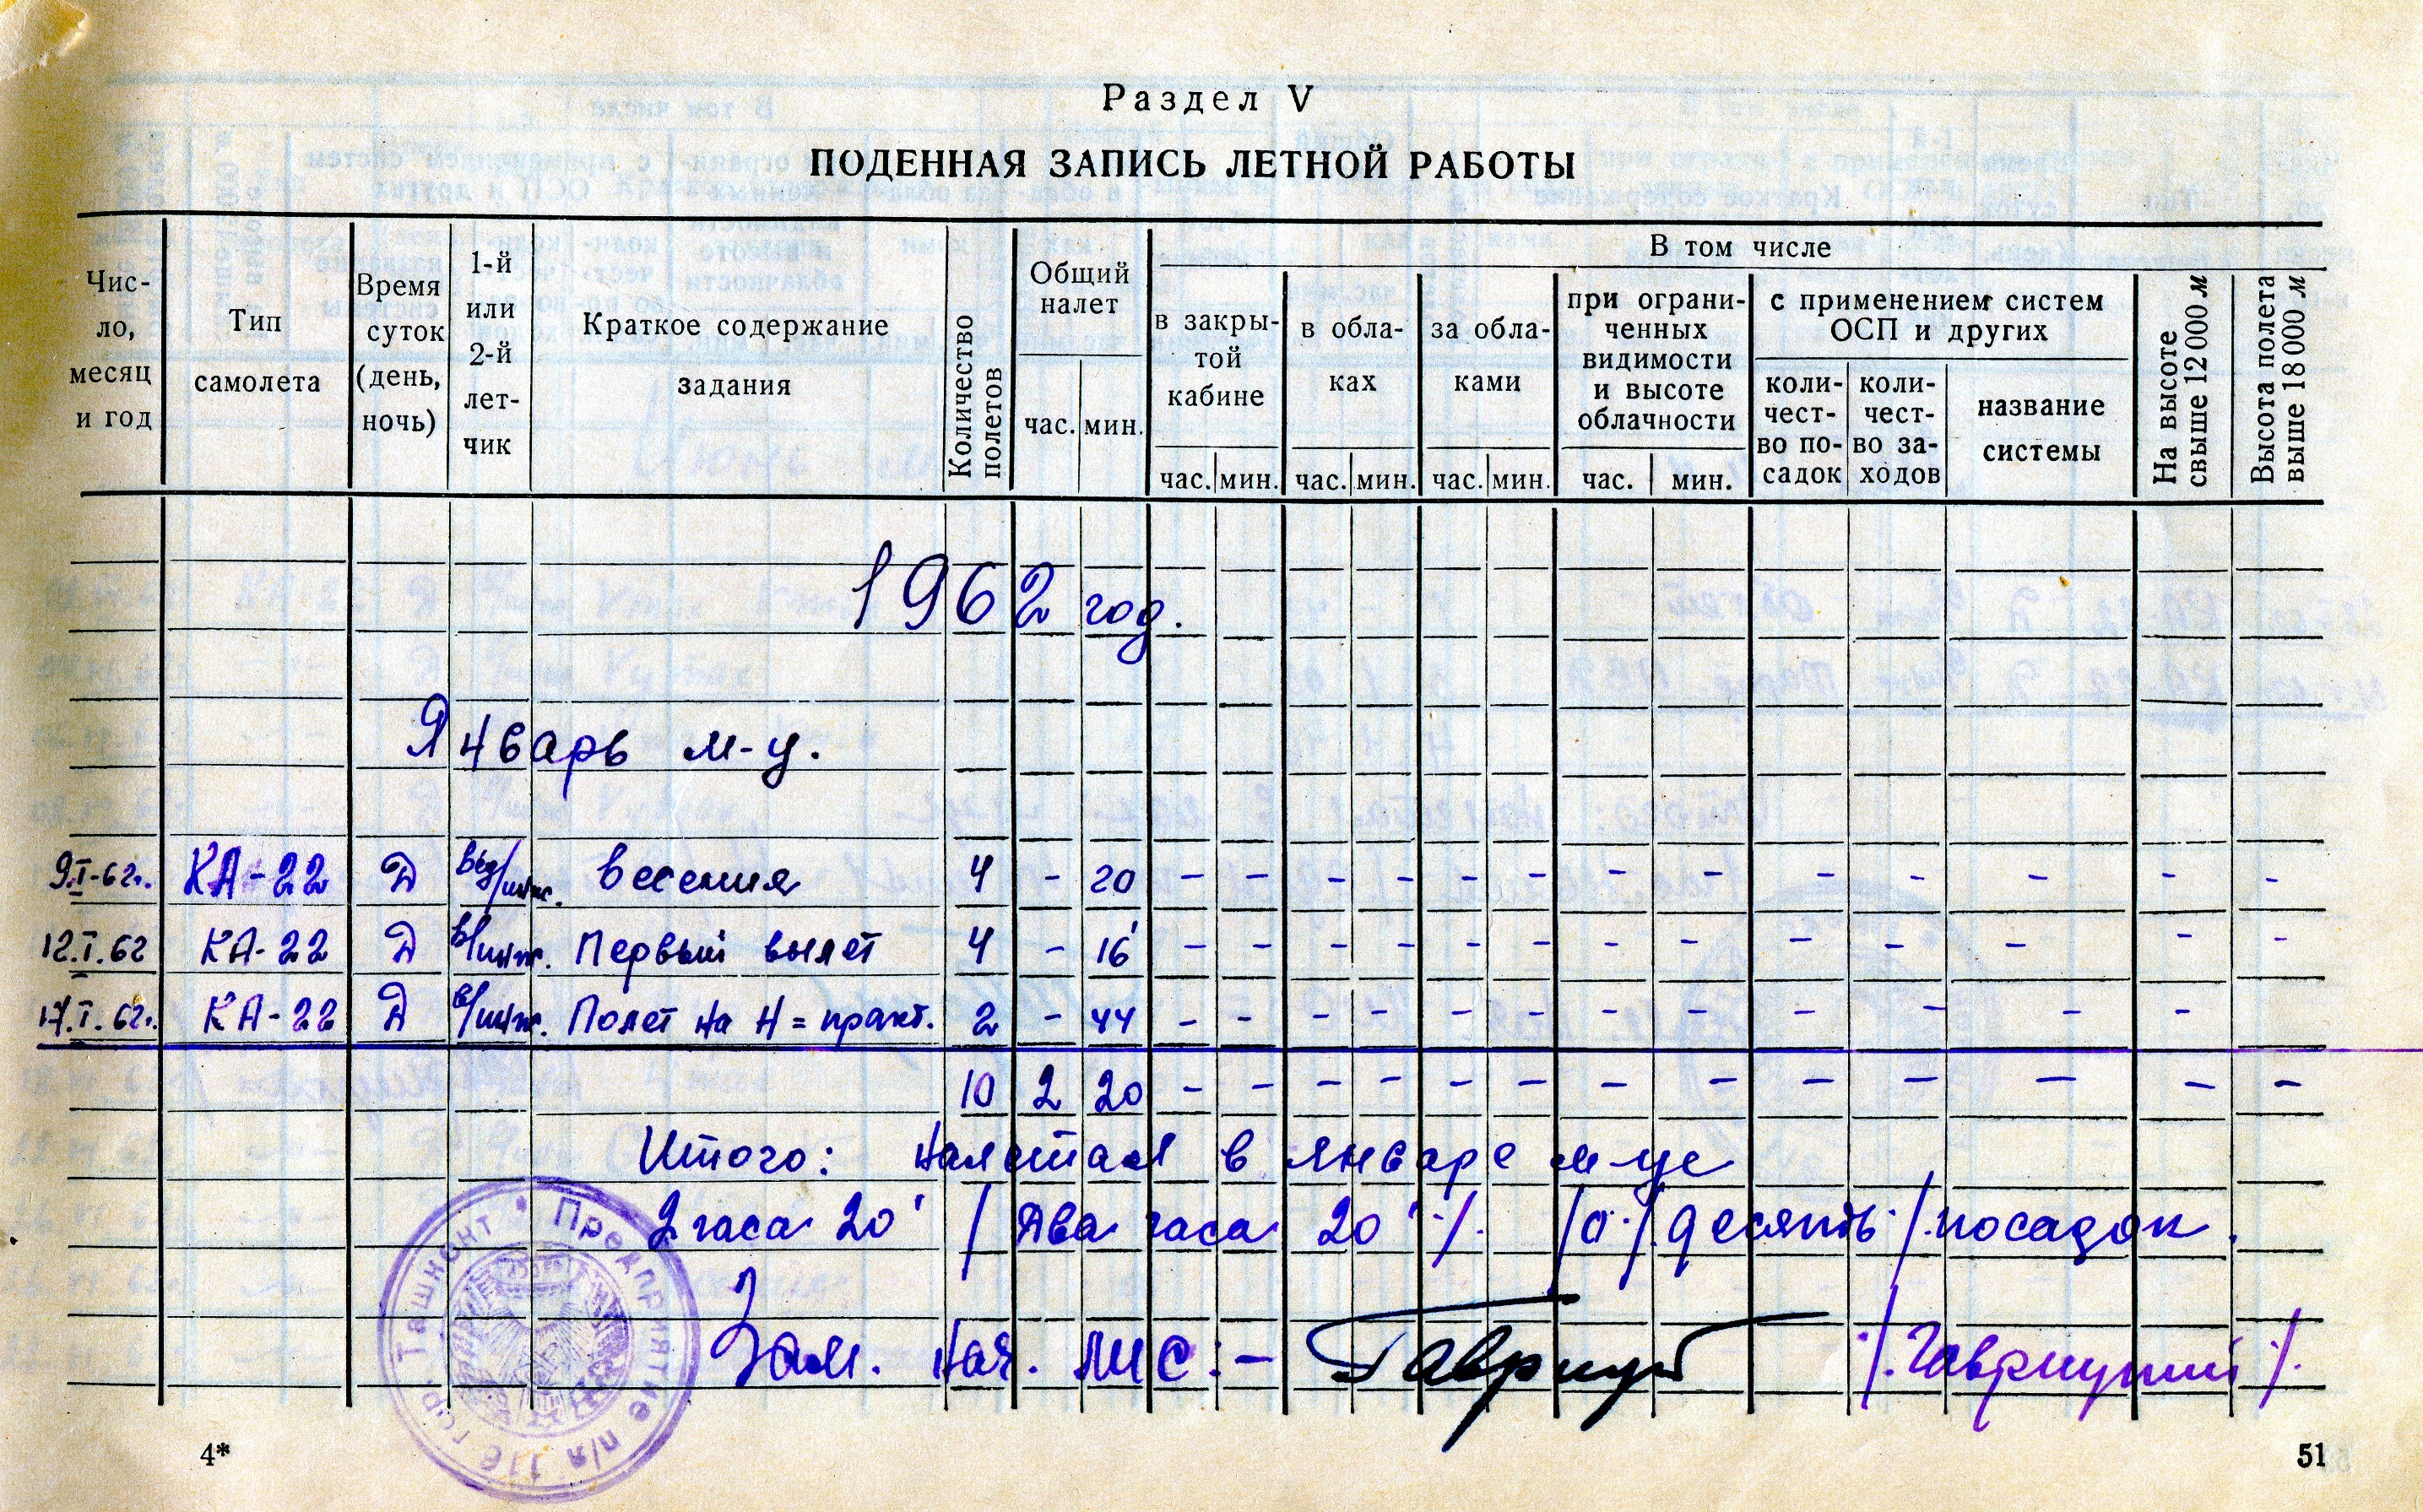 Раздел V
ПОДЕННАЯ ЗАПИСЬ ЛЕТНОЙ РАБОТЫ
Чис-
ло,
месяц
и год
Тип
самолета
Время
суток
(день,
ночь)
1-й
или
2-й
лет-
чик
Краткое содержание
задания
Количество
полетов
Общий
налет
час. мин.
В том числе
в закры-
той
кабине
час. мин.
в обла-
ках
час. мин.
за обла-
ками
час. мин.
при ограни-
ченных
видимости
и высоте
облачности
час. мин.
с применением систем
ОСП и других
коли-
чест-
во по-
садок
коли-
чест-
во за-
ходов
название
системы
На высоте
свыше 12 000 м
Высота полета
выше 18 000 м
1962 год.
Январь м-ц.
9.I-62г. КА-22 Д Вед/инж. 4 - 20 - - - - - - - - - - - - -
12.I.62 КА-22 Д в/инж. Первый вылет 4 - 16' - - - - - - - - - - - - -
17.I.62г. КА-22 Д в/инж. Полет на Н = практ. 2 - 44 - - - - - - - - - - - -
10 2 20 - - - - - - - - - - - - -
Итого: налетал в январе м-це
2 часа 20' / Два часа 20'./. 10./. десять./. посадок.
Зам. Нач. ЛИС:- Гавриц ./. Гаврицкий ./.
Ташкент * Предприятие п/я 116 гор.
4*
51